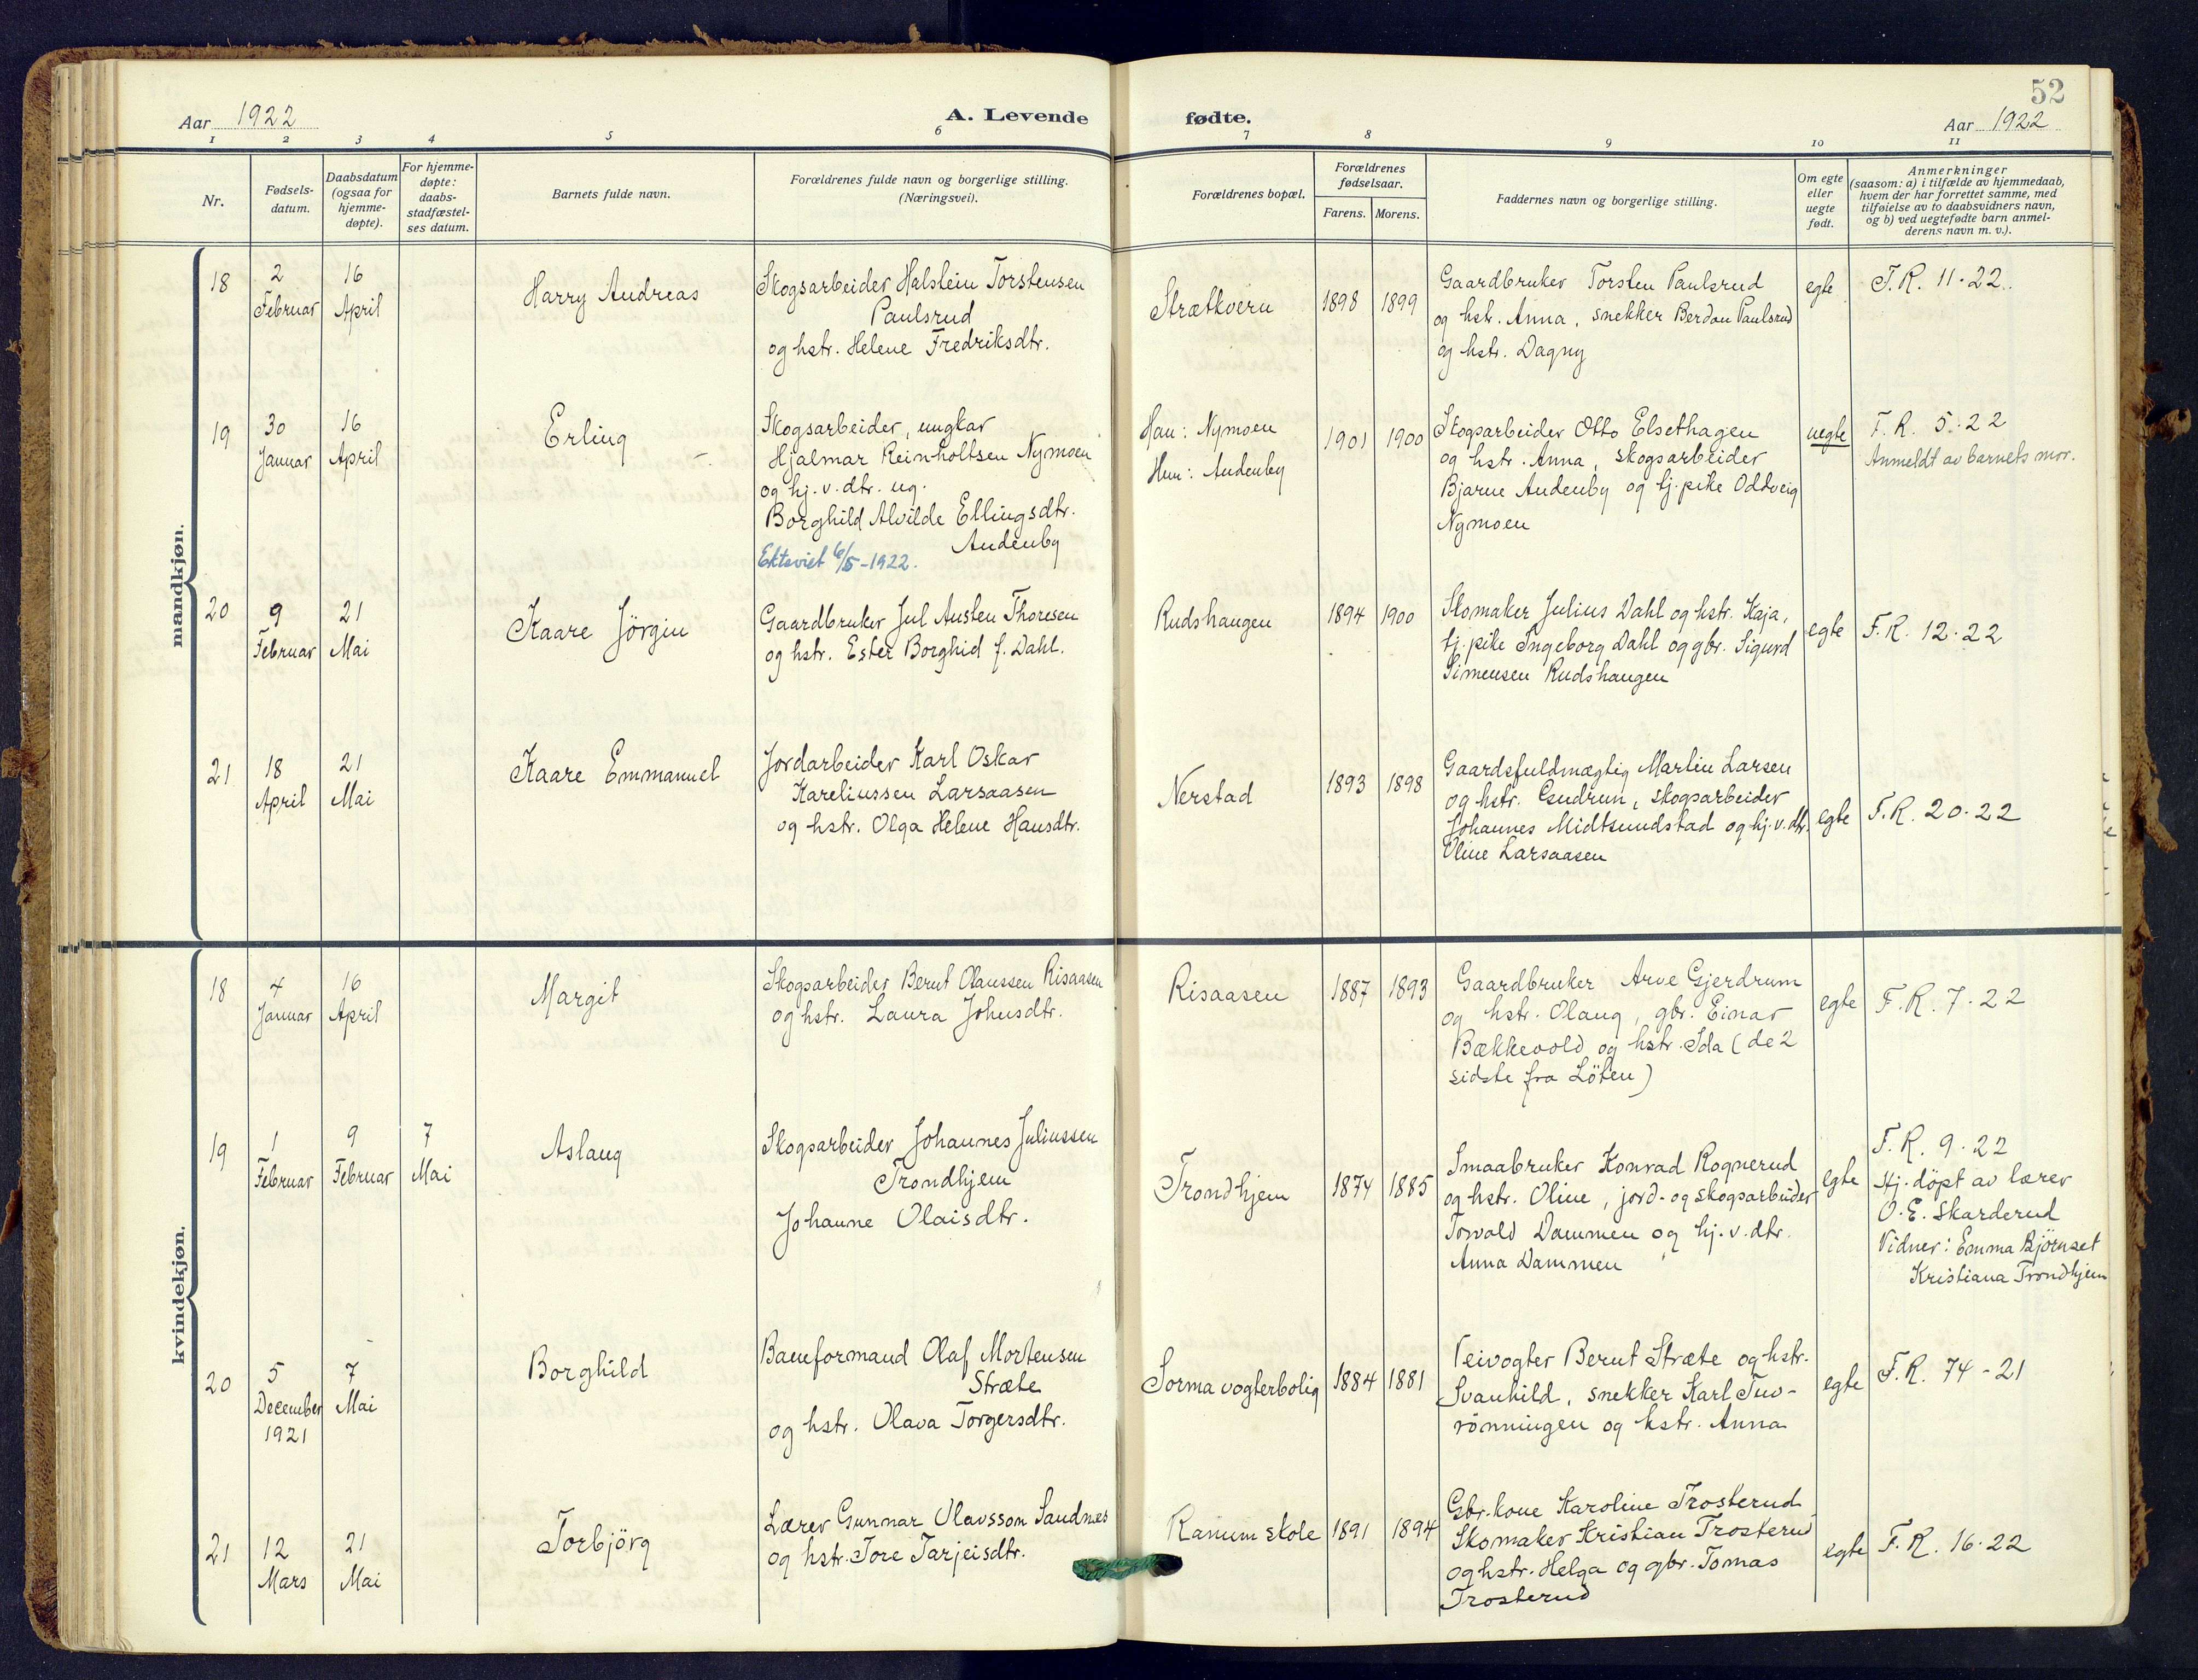 52
Aar 1922
A. Levende
fødte.
Aar 1922
1 2 3 4 5 6 7 8 9 10 11
Nr.
Fødsels-
datum.
Daabsdatum
(ogsaa for
hjemme-
døpte).
For hjemme-
døpte:
daabs-
stadfæstel-
ses datum.
Barnets fulde navn.
Forældrenes fulde navn og borgerlige stilling.
(Næringsvei).
Forældrenes bopæl.
Forældrenes
fødselsaar.
Farens. Morens.
Faddernes navn og borgerlige stilling.
Om egte
eller
uegte
født.
Anmerkninger
(saasom: a) i tilfælde av hjemmedaab,
hvem der har forrettet samme, med
tilføielse av to daabsvidners navn,
og b) ved uegtefødte barn anmel-
derens navn m. v.).
mandkjøn.
18
2
Februar
16
April
Harry Andreas
Skogsarbeider Halstein Torstensen
Paulsrud
og hstr. Helene Fredriksdtr.
Strætkvern
1898
1899
Gaardbruker Torsten Paulsrud
og hstr. Anna, snekker Berdon Paulsrud
og hstr. Dagny
egte
F.R. 11-22.
19
30
Januar
16
April
Erling
Skogsarbeider, ungkar
Hjalmar Reinholtsen Nymoen
og hj. v. dtr. ug.
Borghild Alvilde Ellingsdtr.
Andenby
Ektevict 6/5-1922.
Han: Nymoen
Hun: Andenby
1901
1900
Skogsarbeider Otto Elsethagen
og hstr. Anna, skogsarbeider
Bjarne Andenby og tj. pike Oddveig
Nymoen
uegte
F.R. 5-22
Anmeldt av barnets mor.
20
9
Februar
21
Mai
Kaare Jörgin
Gaardbruker Jul Austen Thoresen
og hstr. Ester Borghid f. Dahl.
Rudshaugen
1894
1900
Skomaker Julius Dahl og hstr. Kaja,
tj. pike Ingeborg Dahl og gbr. Sigurd
Simensen Rudshaugen
egte
F.R. 12-22
21
18
April
21
Mai
Kaare Emmanuel
Jordarbeider Karl Oskar
Kareliussen Larsaasen
og hstr. Olga Helene Hansdtr.
Nerstad
1893
1898
Gaardsfuldmægtig Martin Larsen
og hstr. Gudrun, skogsarbeider
Johannes Midtsundstad og hj. v. dtr.
Oline Larsaasen
egte
F.R. 20-22
kvindekjøn.
18
4
Januar
16
April
Margit
Skogsarbeider Bernt Olaussen Risaasen
og hstr. Laura Johnsdtr.
Risaasen
1887
1893
Gaardbruker Arve Gjerdrum
og hstr. Olaug, gbr. Einar
Bækkevold og hstr. Ida (de 2
sidste fra Löten)
egte
F.R. 7-22
19
1
Februar
9
Februar
7
Mai
Aslaug
Skogsarbeider Johannes Juliussen
Trondhjem
Johanne Olaisdtr.
Trondhjem
1874
1885
Smaabruker Konrad Rognerud
og hstr. Oline, jord- og skogsarbeider
Torvald Dammen og hj. v. dtr.
Anna Dammen
egte
F.R. 9-22
Hj. döpt av lærer
O. E. Skarderud
Vidner: Emma Björnset
Kristiana Trondhjem
20
5
December
1921
7
Mai
Borghild
Baneformand Olaf Mortensen
Stræte
og hstr. Olava Torgersdtr.
Sorma vogterbolig
1884
1881
Veivogter Bernt Stræte og hstr.
Svanhild, snekker Karl Tuv-
rönningen og hstr. Anna
egte
F.R. 74-21
21
12
Mars
21
Mai
Torbjörg
Lærer Gunnar Olavsson Sandnes
og hstr. Tore Tarjeisdtr.
Ranum skole
1891
1894
Gbr. kone Karoline Trosterud
Skomaker Kristian Trosterud
og hstr. Helga og gbr. Tomas
Trosterud
egte
F.R. 16-22